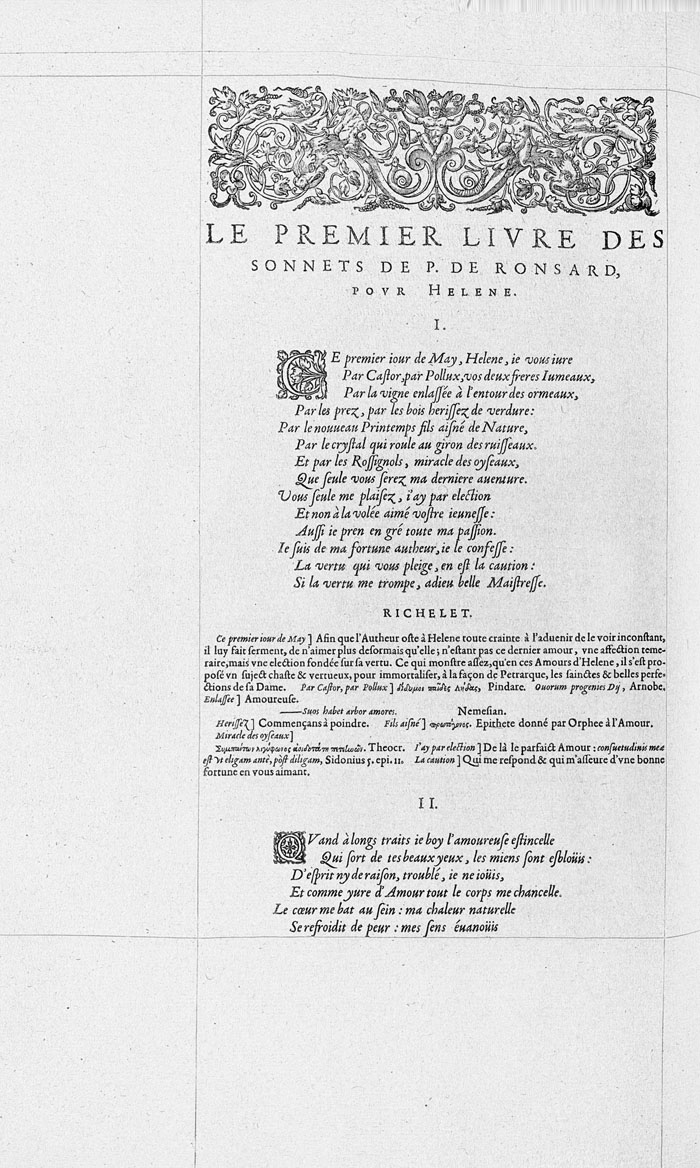 LE PREMIER LIVRE DES
SONNETS DE P. DE RONSARD,
POVR HELENE.
I.
CE premier iour de May, Helene, ie vous iure
Par Castor, par Pollux, vos deux freres Iumeaux,
Par la vigne enlassée à l'entour des ormeaux,
Par les prez, par les bois herissez de verdure:
Par le nouueau Printemps fils aisné de Nature,
Par le crystal qui roule au giron des ruisseaux.
Et par les Rossignols, miracle des oyseaux,
Que seule vous serez ma derniere auenture.
Vous seule me plaisez, i'ay par election
Et non à la volée aimé vostre ieunesse:
Aussi ie pren en gré toute ma passion.
Ie suis de ma fortune autheur, ie le confesse:
La vertu qui vous pleige, en est la caution:
Si la vertu me trompe, adieu belle Maistresse.
RICHELET.
Ce premier iour de May] Afin que l'Autheur oste à Helene toute crainte à l'aduenir de le voir inconstant,
il luy fait serment, de n'aimer plus desormais qu'elle; n'estant pas ce dernier amour, vne affection teme-
raire, mais vne election fondée sur sa vertu. Ce qui monstre assez, qu'en ces Amours d'Helene, il s'est pro-
posé vn suject chaste & vertueux, pour immortaliser, à la façon de Petrarque, les sainctes & belles perfe-
ctions de sa Dame. Par Castor, par Pollux] δίδυμοι παῖδες Λήδας, Pindare. Quorum progenies Dij, Arnobe.
Enlassée] Amoureuse.
—Suos habet arbor amores. Nemesian.
Herissez] Commençans à poindre. Fils aisné] Epithete donné par Orphee à l'Amour.
Miracle des oyseaux]
Theocr. I'ay par election] De là le parfaict Amour: consuetudinis mea
est vt eligam antè, pòst diligam, Sidonius 5. epi. 11. La caution] Qui me respond & qui m'asseure d'vne bonne
fortune en vous aimant.
II.
QVand à longs traits ie boy l'amoureuse estincelle
Qui sort de tes beaux yeux, les miens sont esbloüis:
D'esprit ny de raison, troublé, ie ne ioüis,
Et comme yure d'Amour tout le corps me chancelle.
Le cœur me bat au sein: ma chaleur naturelle
Se refroidit de peur: mes sens éuanoüis